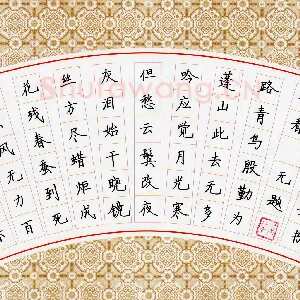 看无题
路青鸟殷勤为
蓬山此去无多
吟应觉月光寒
但愁云鬓改夜
灰泪始干晓镜
丝方尽蜡炬成
花残春蚕到死
风无力百
Shufawang.CN